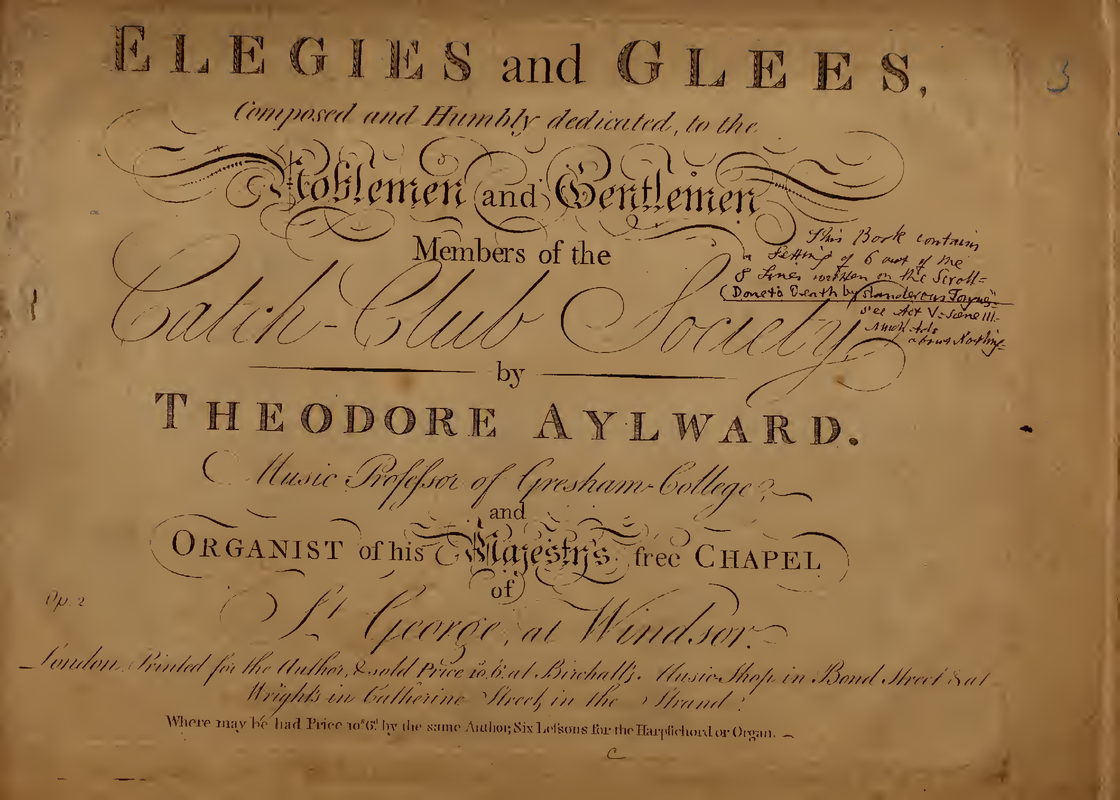 ELEGIES and GLEES,
3
Composed and Humbly dedicated, to the
Noblemen and Gentlemen
Members of the
This Book contains
a Setting of 6 out of the
8 Lines written on the Scroll-
(Done to Death by slanderous Tongue"
see Act V: Scene III.
Much Ado
about Nothing-
Catch-Club Society
by
THEODORE AYLWARD.
Music Profeſsor of Gresham-College,
and
ORGANIST of his Majesty's free CHAPEL
of
St. George, at Windsor.
Op. 2
London. Printed for the Author, & sold Price 10.6. at Birchall's Music Shop in Bond Street & at
Wright's in Catherine Street, in the Strand.
Where may be had Price 10s.6d. by the same Author; Six Leſsons for the Harpſichord or Organ.
C